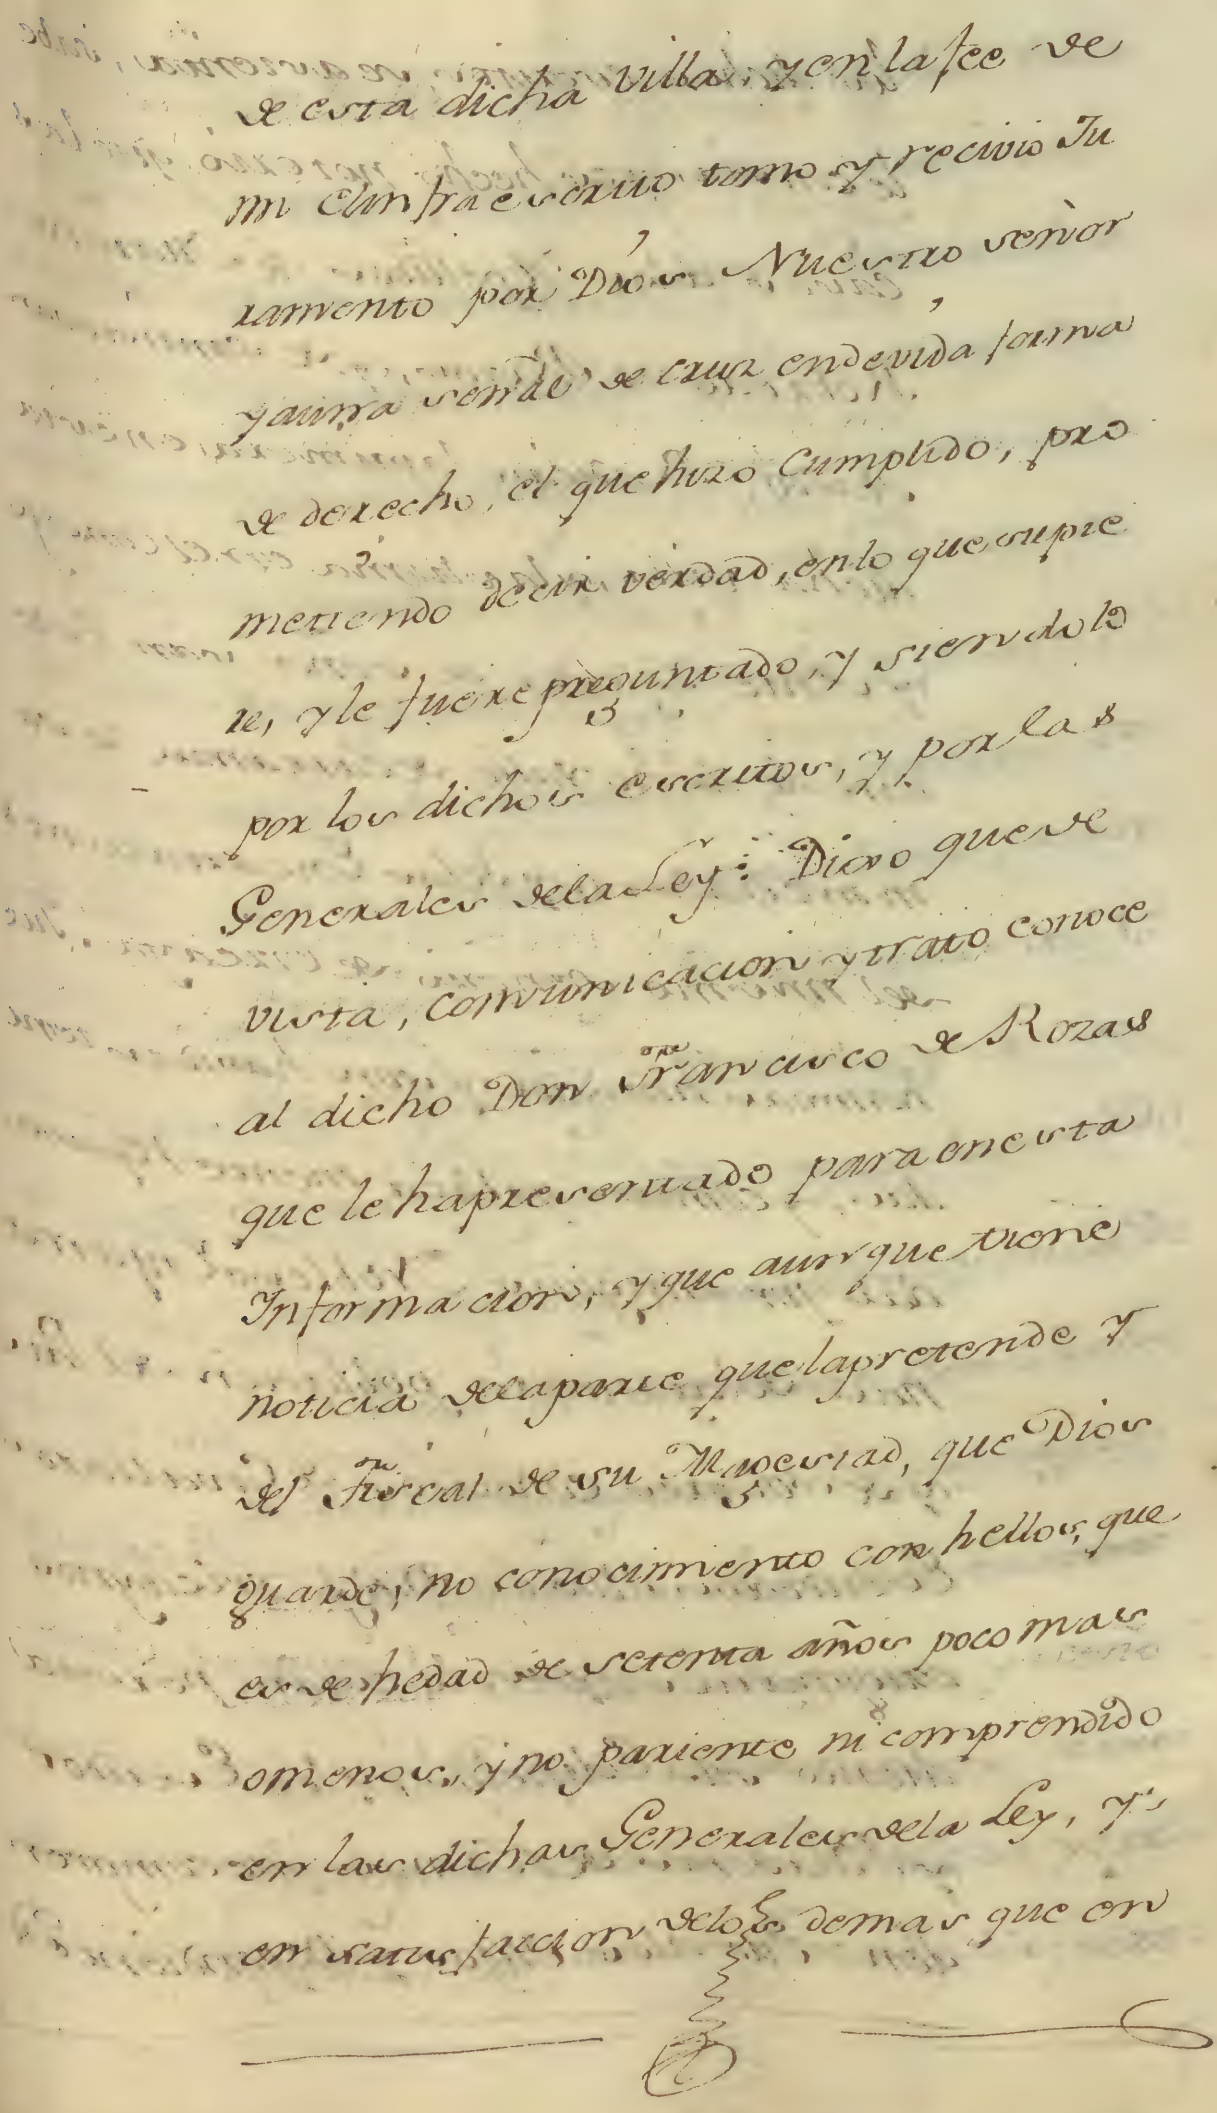 de esta dicha Villa, y en la fee de
mi el infraescrito tomo y recivio Ju
ramento por Dios Nuestro señor
y a una señal de cruz en devida forma
de derecho, el que hizo Cumplido, pro
metiendo decir verdad, en lo que supie
re, y le fuere preguntado, y siendolo
por los dichos escritos, y por las
Generales de la Ley: Dixo que de
vista, comunicacion y trato conoce
al dicho Don Francisco de Rozas
que le ha presentado para en esta
Informacion, y que aunque tiene
noticia de la parte que la pretende y
del Fiscal de su Magestad, que Dios
guarde, no conocimiento con hellos, que
es de hedad de setenta años poco mas
o menos, y no pariente ni comprendido
en las dichas Generales de la Ley, y
en satisfaccion de lo demas que en